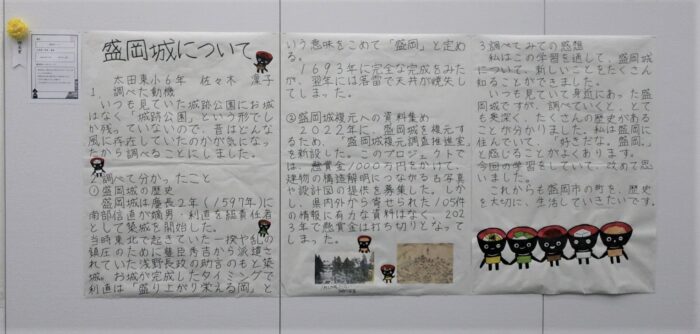 盛岡城について
太田東小6年 佐々木 凜子
1, 調べた動機
いつも見ていた城跡公園にお城
はなく「城跡公園」という形でし
か残っていないので、昔はどんな
風に存在していたのかが気になっ
たから調べることにしました。
2, 調べて分かったこと
①盛岡城の歴史
盛岡城は慶長2年(1597年)に
南部信直が嫡男・利直を総責任者
として築城を開始した。
当時東北で起きていた一揆や乱の
鎮圧のために豊臣秀吉から派遣さ
れていた浅野長政の助言のもと築
城。お城が完成したタイミングで
利直は「盛り上がり栄える岡」と
いう意味をこめて「盛岡」と定め
る。
1693年に完全な完成をみた
が、翌年には落雷で天井が焼失し
てしまった。
②盛岡城復元への資料集め
2022年に、盛岡城を復元す
るため、「盛岡城復元調査推進室」
を新設した。このプロジェクトで
は、懸賞金1000万円をかけて
建物の構造解明につながる古写真
や設計図の提供を募集した。しか
し、県内外から寄せられた105件
の情報に有力な資料はなく、202
3年で懸賞金は打ち切りとなって
しまった。
3 調べてみての感想
私はこの学習を通して、盛岡城
について、新しいことをたくさん
知ることができました。
いつも見ていて身近にあった盛
岡城ですが、調べていくと、とて
も奥深く、たくさんの歴史がある
ことが分かりました。私は盛岡に
住んでいて、「好きだな。盛岡。」
と感じることがよくあります。
今回の学習をしていて、改めて思
いました。
これからも盛岡市の町を、歴史
を大切に、生活していきたいです。